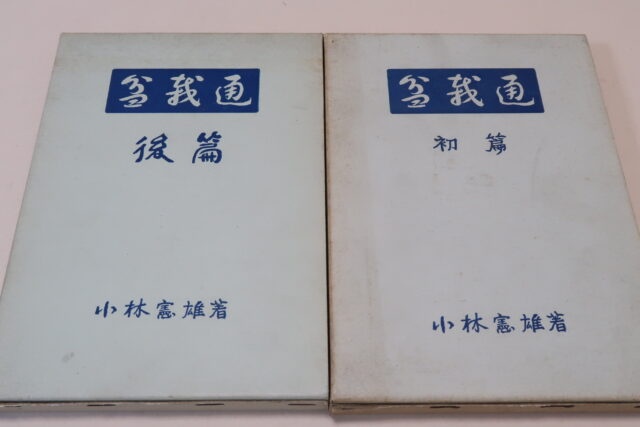 盆栽通
後篇
小林憲雄著
盆栽通
初篇
小林憲雄著